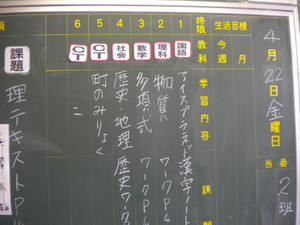 4月22日金曜日
当番 2班
生活目標
今週 月
時限 教科 学習内容 課題
1 国語 アイスプラネット漢字ノート
2 理科 物質 ワークP4
3 数学 多項式 ワークP4
4 社会 歴史・地理 歴史ワーク
5 CT 町のみりょく
6 CT 〃
課題 理テキストP